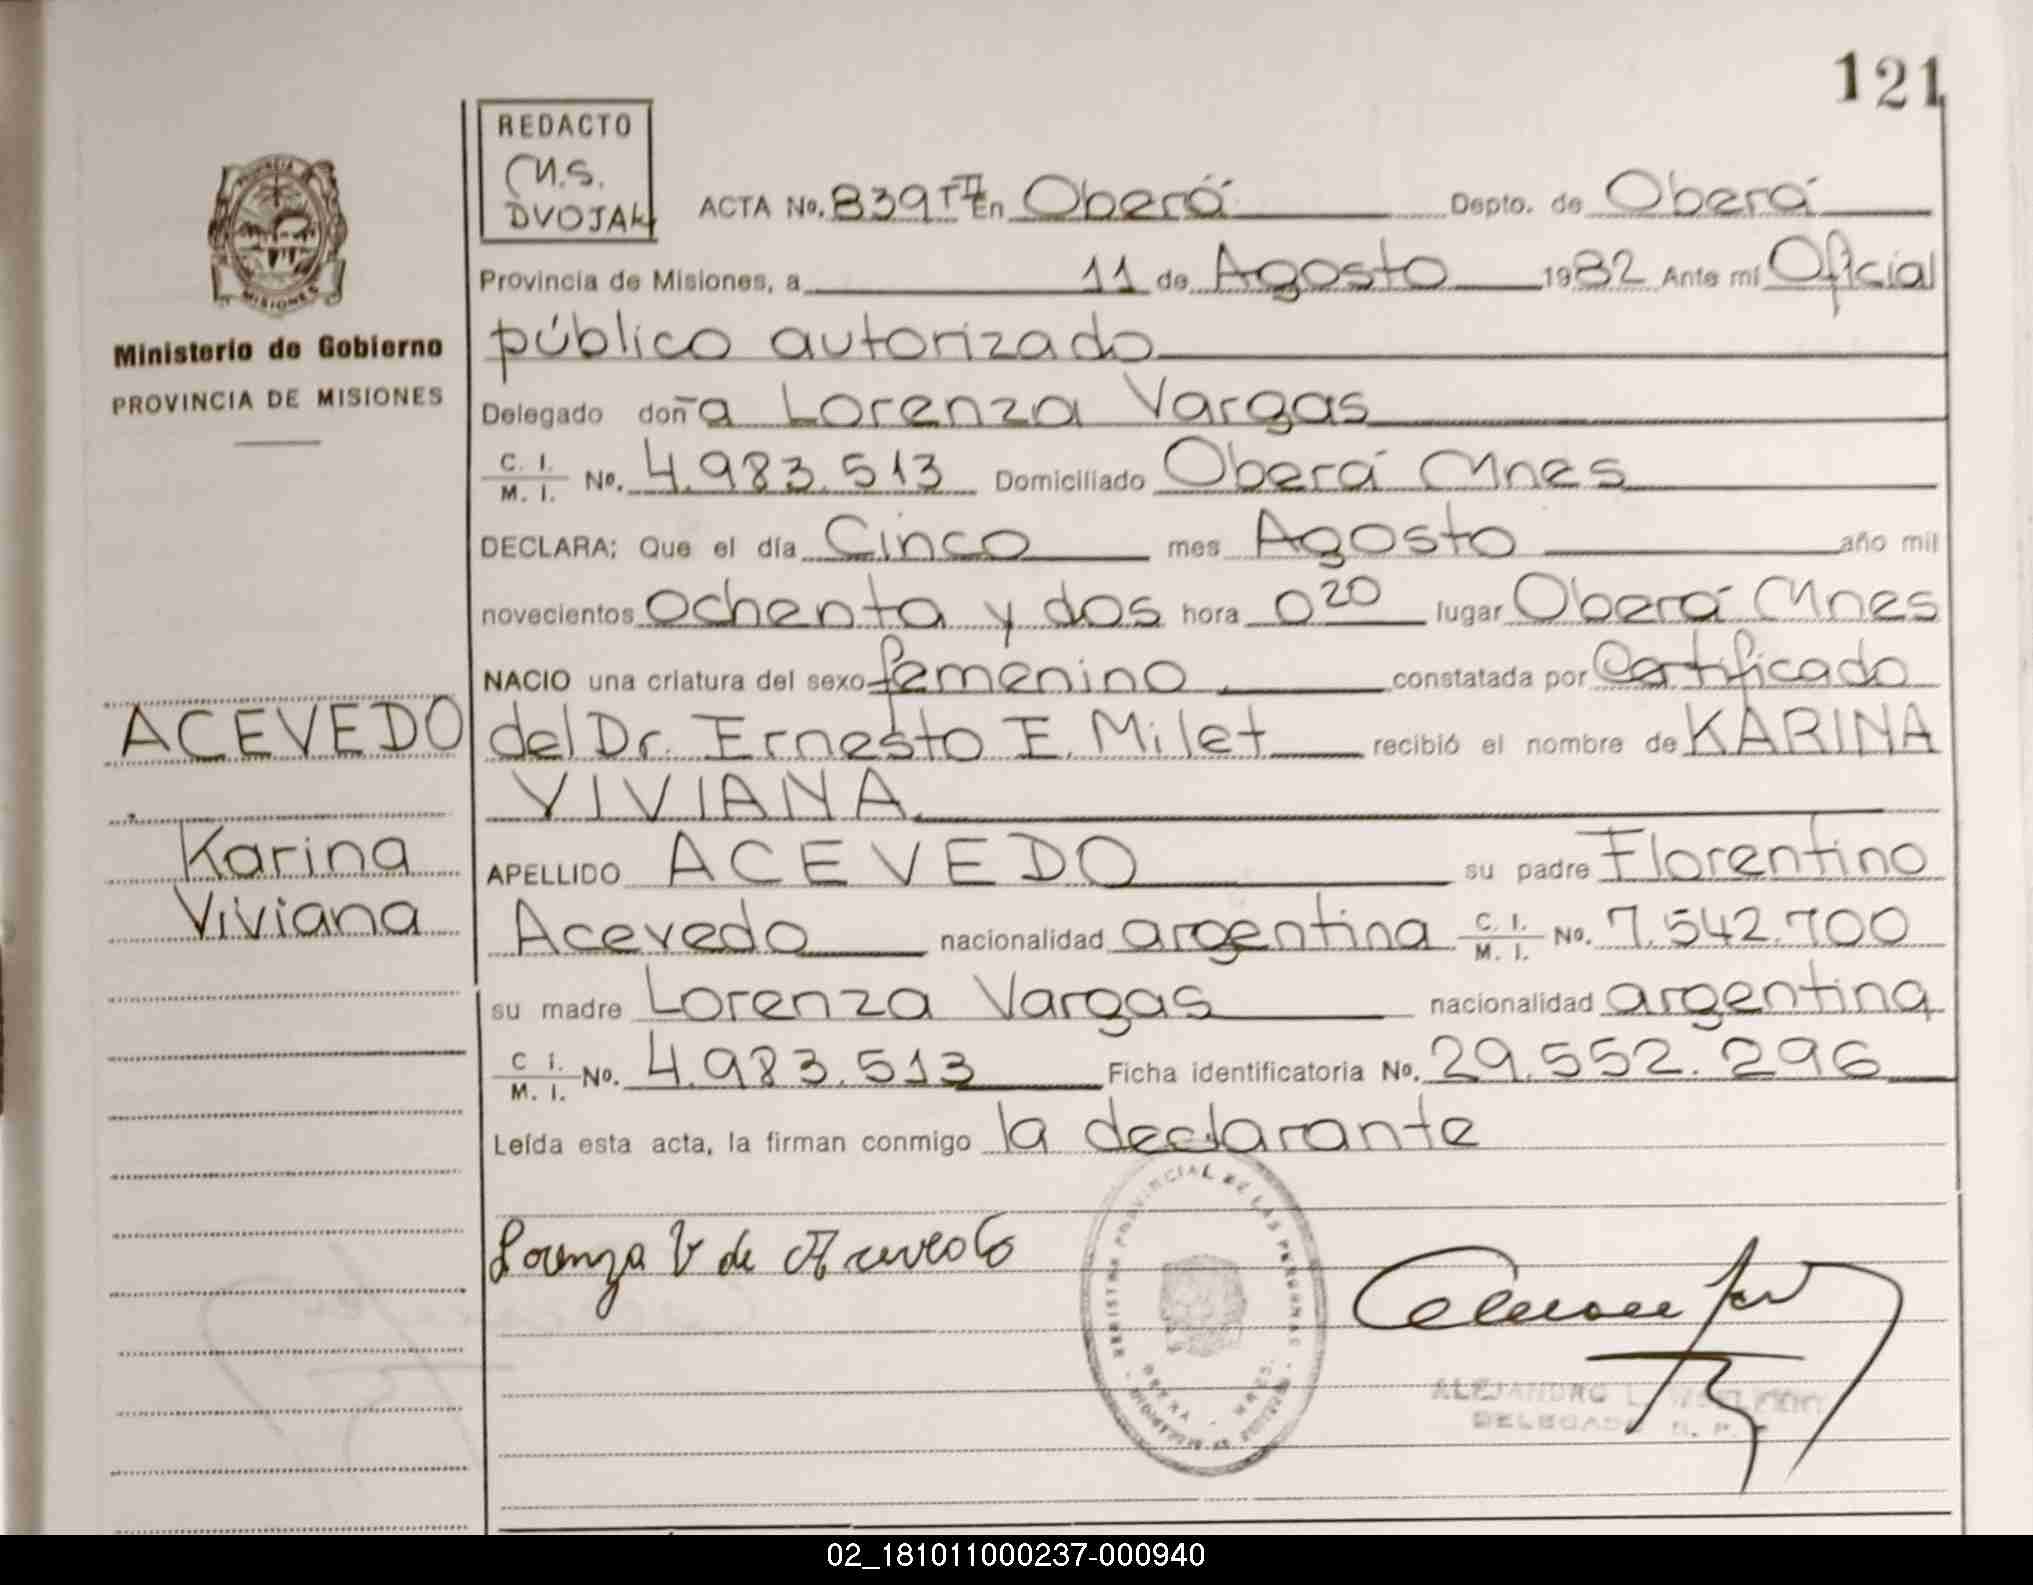 121
REDACTO
M.S.
DVOJAK
PROVINCIA
MISIONES
Ministerio de Gobierno
PROVINCIA DE MISIONES
ACTA No. 839 TII En Oberá Depto. de Oberá
Provincia de Misiones, a 11 de Agosto 1982 Ante mí Oficial
público autorizado
Delegado doña Lorenza Vargas
C. I. / M. I. No. 4.983.513 Domiciliado Oberá Mnes
DECLARA; Que el día Cinco mes Agosto año mil
novecientos ochenta y dos hora 0 20 lugar Oberá Mnes
NACIO una criatura del sexo femenino constatada por Certificado
del Dr. Ernesto E. Milet recibió el nombre de KARINA
VIVIANA
APELLIDO ACEVEDO su padre Florentino
Acevedo nacionalidad argentina C. I. / M. I. No. 7.542.700
su madre Lorenza Vargas nacionalidad argentina
C I. / M. I. No. 4.983.513 Ficha identificatoria No. 29.552.296
Leída esta acta, la firman conmigo la declarante
ACEVEDO
Karina
Viviana
Lorenza V de Acevedo
REGISTRO PROVINCIAL DE LAS PERSONAS
OBERA - MNES.
ALEJANDRO L.
DELEGADO R. P.
02_181011000237-000940